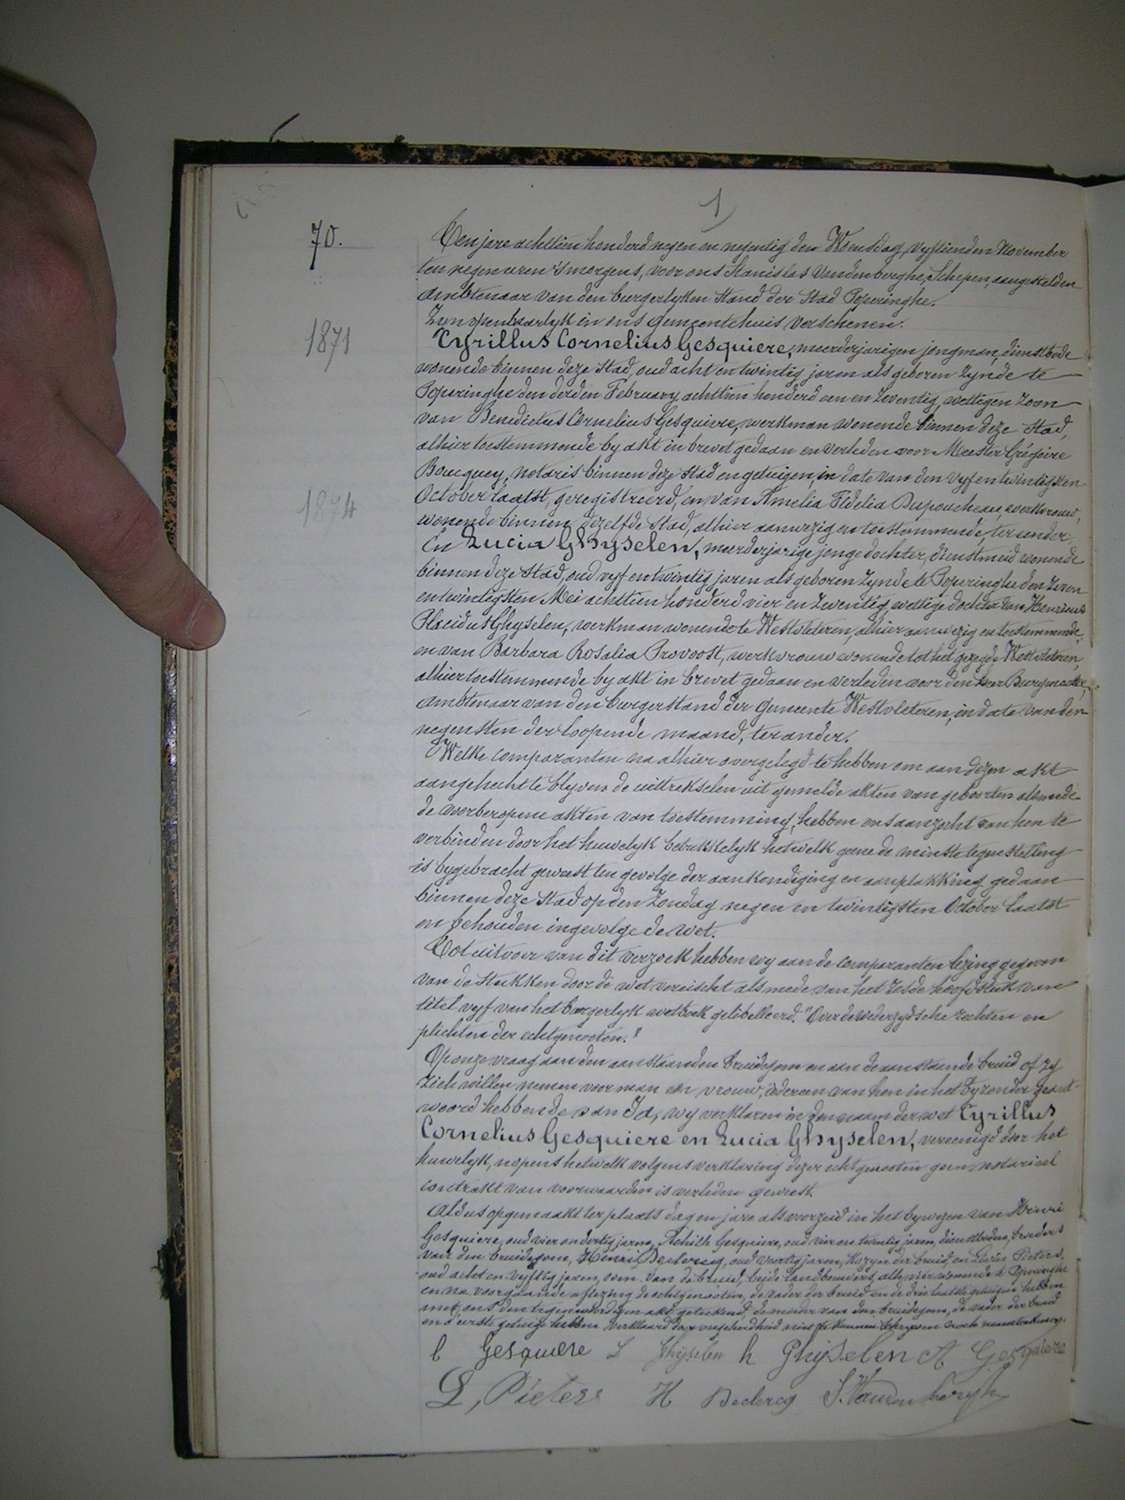 1
70.
1871
1874
Ten jare achttien honderd negen en negentig den Woensdag, vyftienden November
ten negen uren 's morgens, voor ons Stanislas Vandenberghe, Schepen, aangestelden
ambtenaar van den burgerlyken stand der Stad Poperinghe.
Zyn openbaarlyk in ons gemeentehuis verschenen.
Cyrillus Cornelius Gesquiere, meerderjarigen jongman, dienstbode
wonende binnen deze Stad, oud acht en twintig jaren als geboren zynde te
Poperinghe den derden February achttien honderd een en zeventig, wettigen zoon
van Benedictus Cornelius Gesquiere, werkman wonende binnen deze Stad,
alhier toestemmende by akt in brevet gedaan en verleden voor Meester Grégoire
Boucquey, notaris binnen deze Stad en getuigen, in date van den vyf en twintigsten
October laatst, geregistreerd, en van Amelia Fidelia Dupoucheau, werkvrouw,
wonende binnen dezelfde Stad, alhier aanwezig en toestemmende, ter eender
En Lucia Ghyselen, meerderjarige jonge dochter, dienstmeid wonende
binnen deze Stad, oud vyf en twintig jaren als geboren zynde te Poperinghe den zeven
en twintigsten Mei achttien honderd vier en zeventig, wettige dochter van Henricus
Placidus Ghyselen, werkman wonende te Westvleteren, alhier aanwezig en toestemmende,
en van Barbara Rosalia Provoost, werkvrouw wonende tot het gezegde Westvleteren,
alhier toestemmende by akt in brevet gedaan en verleden voor den Heer Burgmeester,
ambtenaar van den burgerstand der gemeente Westvleteren, in date van den
negensten der loopende maand, ter ander.
Welke comparanten na alhier overgelegd te hebben om aan dezen akt
aangehecht te blyven de uittrekselen uit gemelde akten van geboorten alsmede
de voorberopene akten van toestemming, hebben ons aanzocht van hen te
verbinden door het huwelyk betrekkelyk hetwelk geene de minste tegenstelling
is bygebracht geweest ten gevolge der aankondiging en aanplakking gedaan
binnen deze Stad op den Zondag negen en twintigsten October laatst
en behouden ingevolge de wet.
Tot uitvoer van dit verzoek hebben wy aan de comparanten lezing gegeven
van de stukken door de wet vereischt alsmede van het zesde hoofdstuk van
titel vyf van het burgerlyk wetboek getitelleerd. "Over de wederzydsche rechten en
plichten der echtgenooten."
Op onze vraag aan den aanstaanden bruidegom en aan de aanstaande bruid of zy
zich willen nemen voor man en vrouw, iedereen van hen in het byzonder geant-
woord hebbende van Ja, wy verklaren in den naam der wet Cyrillus
Cornelius Gesquiere en Lucia Ghyselen, vereenigd door het
huwelyk, nopens hetwelk volgens verklaring dezer echtgenooten geen notarieel
contrakt van voorwaarden is verleden geweest.
Aldus opgemaakt ter plaats dag en jare als voorzeid in het bywezen van Henri
Gesquiere, oud vier en dertig jaren, Achille Gesquiere, oud vier en twintig jaren, dienstboden, broeders
van den bruidegom, Henri Declercq, oud veertig jaren, kozyn der bruid, en Pieters,
oud achtenvyftig jaren, oom van de bruid, beide landbouwers, alle vier wonende te Poperinghe
en na voorgaande aflezing de echtgenooten, de vader der bruid en de drie laatste getuigen hebben
met ons den tegenwoordigen akt geteekend, de moeder van den bruidegom, de vader der bruid
en d'eerste getuige hebben verklaard
C Gesquiere L Ghyselen h Ghyselen A Gesquiere
L, Pieters H Declercq S. Vandenberghe